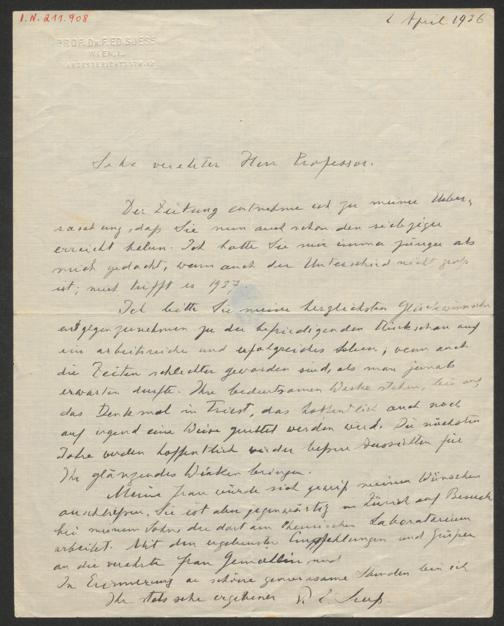 I.N. 211.908
2 April 1936
PROF. DR. F. ED. SUESS
WIEN, I.,
Sehr verehrter Herr Professor.
Der Zeitung entnehme ich zu meiner Ueber-
raschung, daß Sie nun auch schon den siebziger
erreicht haben. Ich hatte Sie mir immer jünger als
mich gedacht, wenn auch der Unterschied nicht groß
ist; mich trifft es 1937.
Ich bitte Sie meine herzlichsten Glückwünsche
entgegenzunehmen zu der befriedigenden Rückschau auf
ein arbeitsreiches und erfolgreiches Leben, wenn auch
die Zeiten schlechter geworden sind, als man jemals
erwarten durfte. Ihre bedeutsamen Werke stehen, bis auf
das Denkmal in Triest, das hoffentlich auch noch
auf irgend eine Weise gerettet werden wird. Die nächsten
Jahre werden hoffentlich wieder bessere Aussichten für
Ihr glänzendes Wirken bringen.
Meine Frau würde sich gewiß meinen Wünschen
anschließen. Sie ist aber gegenwärtig in Zürich auf Besuch
bei meinem Sohne, der dort am chemischen Laboratorium
arbeitet. Mit den ergebensten Empfehlungen und Grüßen
an die verehrte Frau Gemahlin und
In Erinnerung an schöne gemeinsame Stunden bin ich
Ihr stets sehr ergebener F. E. Suess